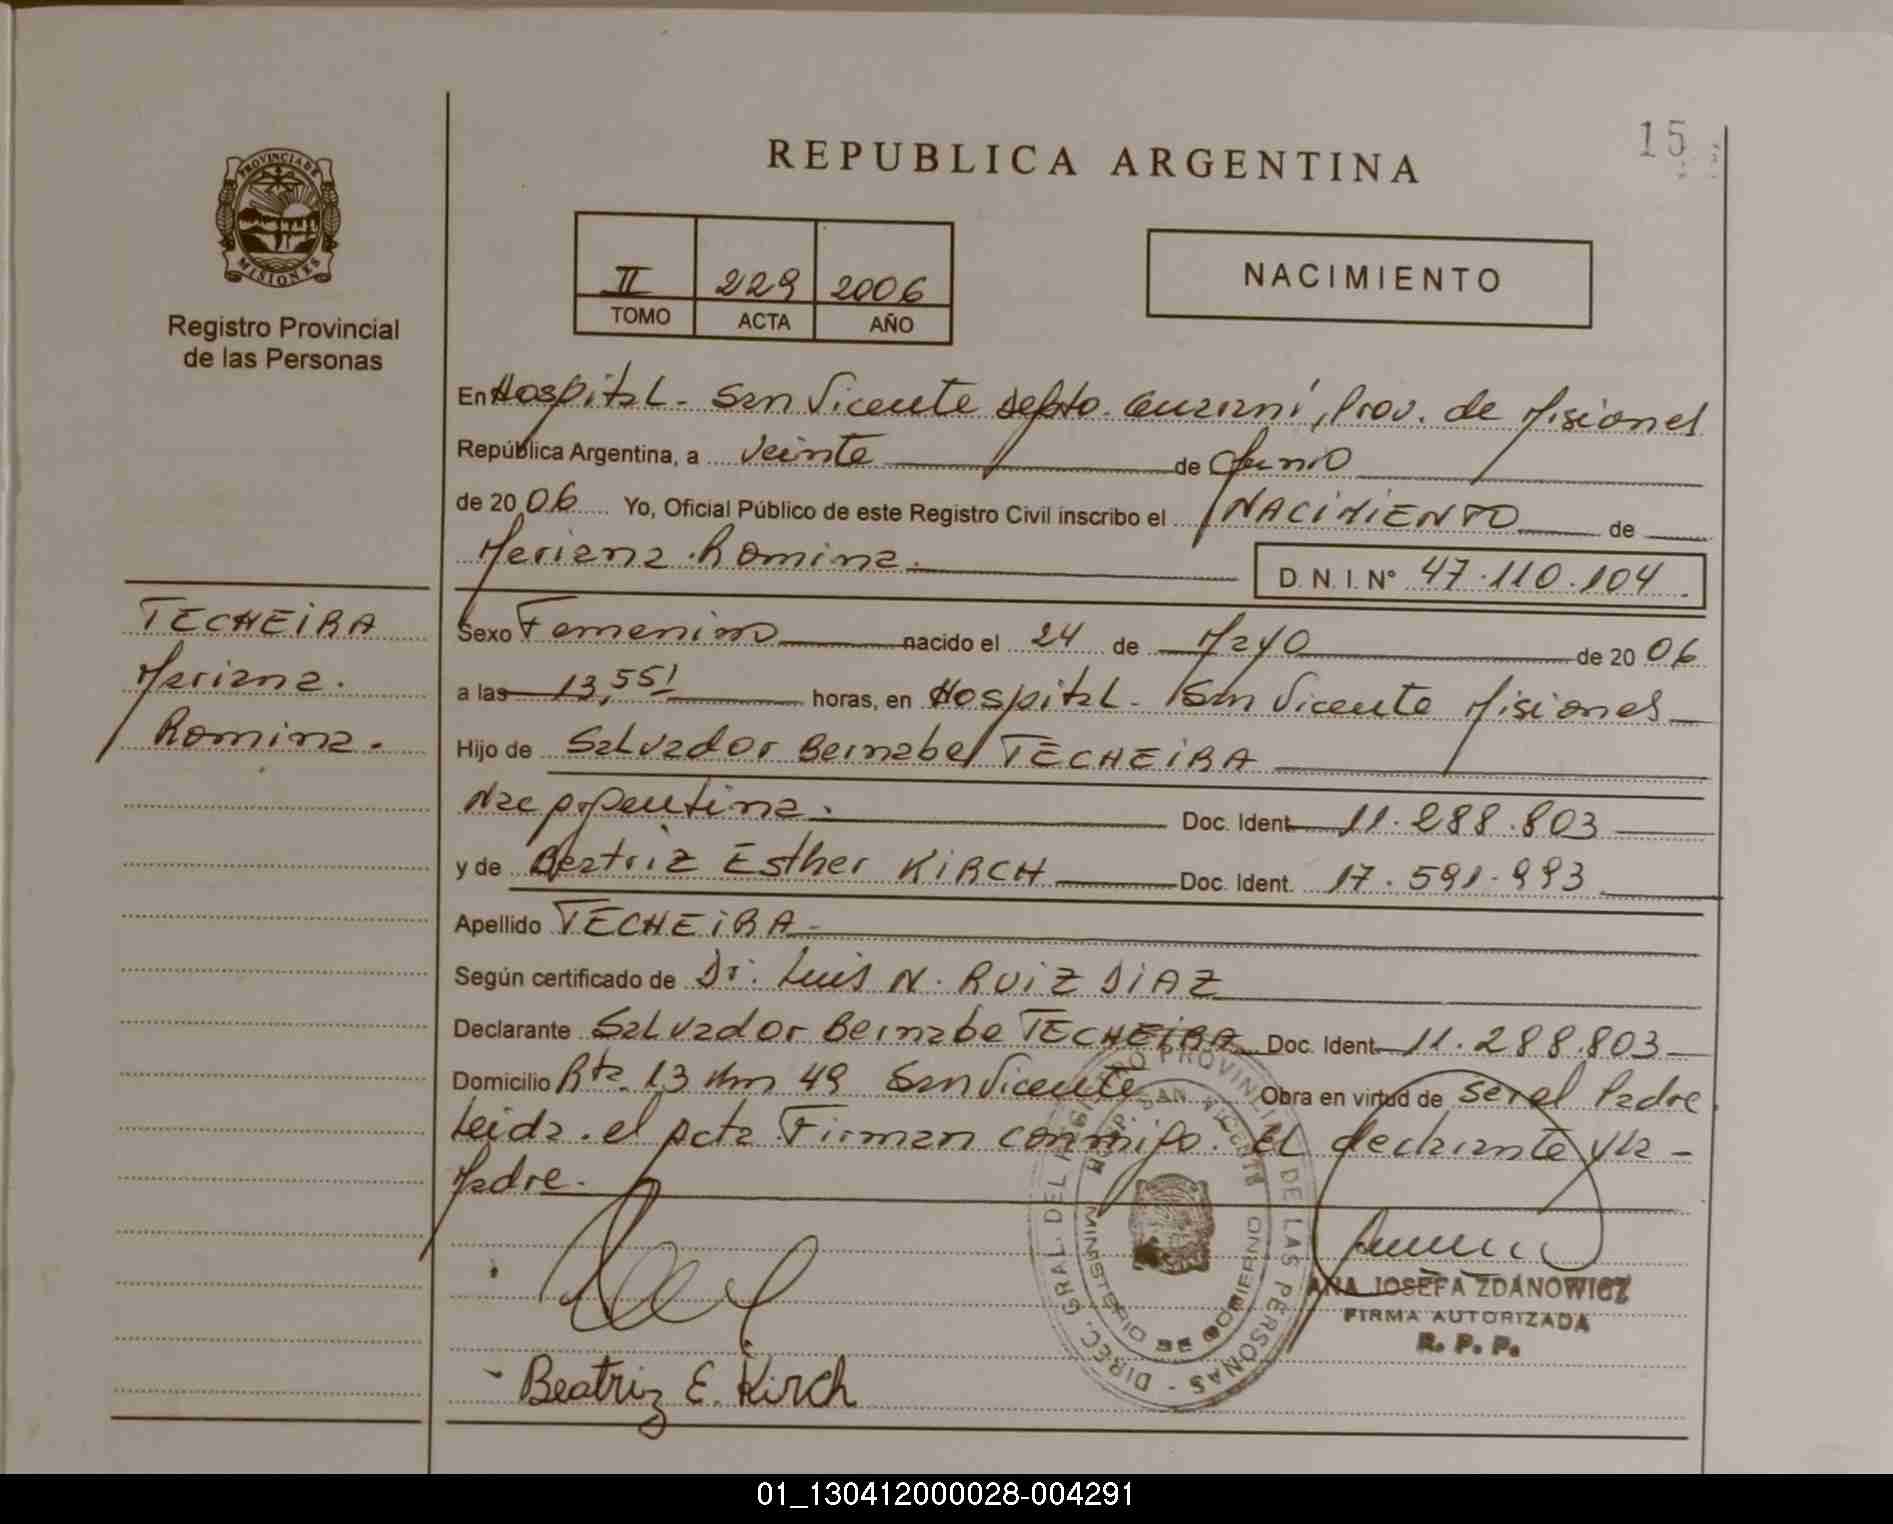 REPUBLICA ARGENTINA
15
PROVINCIA DE
MISIONES
Registro Provincial
de las Personas
II 229 2006
TOMO ACTA AÑO
NACIMIENTO
En Hospital - San Vicente Depto. Guaraní, Prov. de Misiones
República Argentina, a veinte de Junio
de 2006 Yo, Oficial Público de este Registro Civil inscribo el NACIMIENTO de
Mariana Romina. D. N. I. Nº 47.110.104
TECHEIRA
Mariana.
Romina.
Sexo Femenino nacido el 24 de Mayo de 2006
a las 13,55' horas, en Hospital - San Vicente Misiones
Hijo de Salvador Bernabe TECHEIRA
Nac Argentina. Doc. Ident. 11.288.803
y de Beatriz Esther KIRCH Doc. Ident. 17.591.993
Apellido TECHEIRA -
Según certificado de Dr. Luis N. RUIZ DIAZ
Declarante Salvador Bernabe TECHEIRA Doc. Ident. 11.288.803
Domicilio Rta. 13 Km 49 San Vicente Obra en virtud de ser el Padre.
Leida el acta Firman conmigo. El declarante y la -
Madre.
DIREC. GRAL. DEL REGISTRO PROVINCIAL DE LAS PERSONAS -
HOSP. SAN VICENTE
MINISTERIO DE GOBIERNO
ANA JOSEFA ZDANOWICZ
FIRMA AUTORIZADA
R. P. P.
Beatriz E. Kirch
01_130412000028-004291